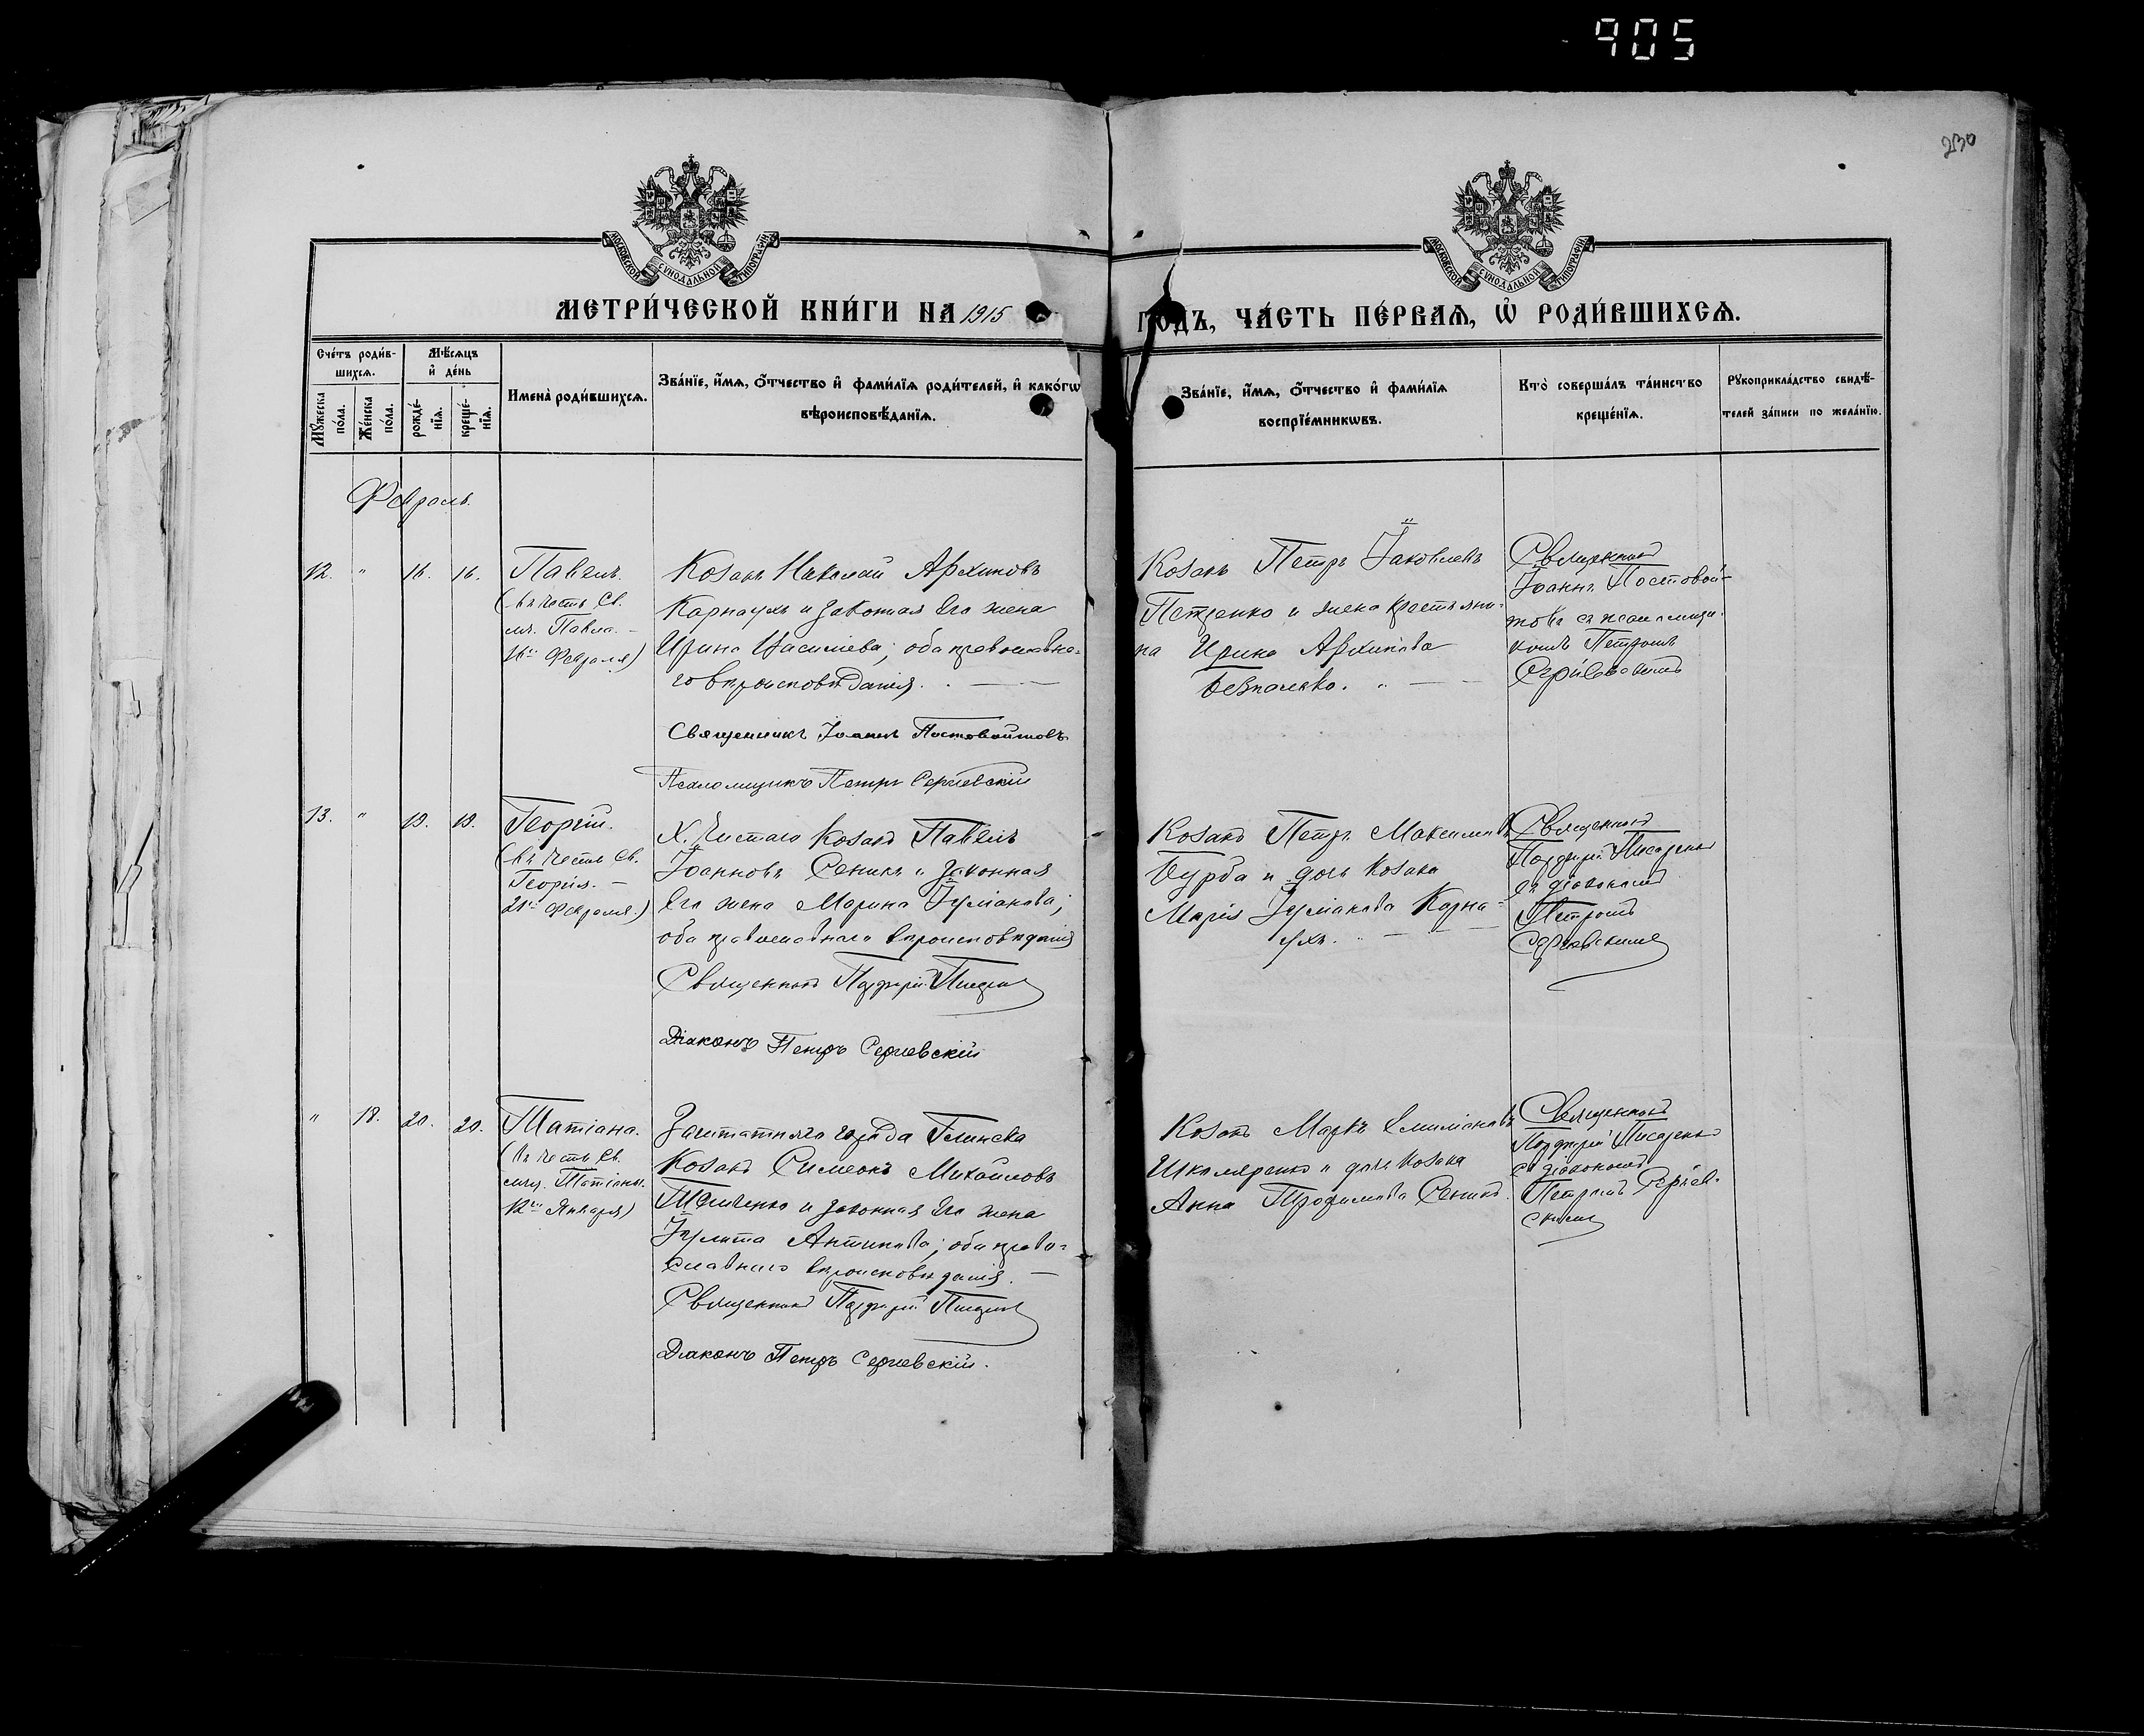 905
230
МОСКОВСКОЙ СѴНОДАЛЬНОЙ ТИПОГРАФІИ
МОСКОВСКОЙ СѴНОДАЛЬНОЙ ТИПОГРАФІИ
МЕТРИ́ЧЕСКОЙ КНИ́ГИ НА 1915
ГОДЪ, ЧА́СТЬ ПЕ́РВАѦ, Ѽ РОДИ́ВШИХСѦ.
Сче́тъ роди́в-
шихсѧ.
Мѣ́сѧцъ
и҆ де́нь
Мꙋ́жеска по́ла.
Же́нска по́ла.
рожде́-нїѧ.
креще́-нїѧ.
И҆мена̀ роди́вшихсѧ.
Зва́нїе, и҆́мѧ, ѻ҆́тчество и҆ фами́лїѧ роди́телей, и҆ како́гѡ
вѣроисповѣ́данїѧ.
Зва́нїе, и҆́мѧ, ѻ҆́тчество и҆ фами́лїѧ
воспрїе́мникѡвъ.
Кто̀ соверша́лъ та́инство
креще́нїѧ.
Рꙋкоприкла́дство свидѣ́-
телей за́писи по жела́нїю.
Февраль.
12. " 16. 16.
Павелъ.
(въ честь Св.
мч. Павла. –
16го Февраля)
Козакъ Николай Архиповъ
Карпаухъ и законная его жена
Ирина; оба православна-
го вѣроисповѣданія.
Священникъ Іоаннъ Постовойтовъ
Псаломщикъ Петръ Сергіевскій
Козакъ Петръ Іаковлевъ
Петренко и жена крестьяни-
на Ирина Архипова
Безпалько.
Священникъ
Іоаннъ Постовой-
товъ съ псаломщи-
комъ Петромъ
Сергіевскимъ
13. " 19. 19.
Георгій.
(въ честь Св.
Георгія. –
21го Февраля.)
Х. Чистаго козакъ Павелъ
Іоанновъ Сеникъ и законная
его жена Марина Іуліанова;
оба православнаго вѣроисповѣданія
Священникъ Порфирій
Діаконъ Петръ Сергіевскій
Козакъ Петръ Максимовъ
Бурба и дочь козака
Марія Іуліанова Карпа-
ухъ.
Священникъ
Порфирій Писаренко
съ діакономъ
Петромъ
Сергіевскимъ
" 18. 20. 20.
Татіана.
(въ честь Св.
мчц. Татіаны.
12го Января)
Заштатнаго города Глинска
козакъ Симеонъ Михайловъ
и законная его жена
Іулита Антипова; оба право-
славнаго вѣроисповѣданія.
Священникъ Порфирій
Діаконъ Петръ Сергіевскій.
Козакъ Маркъ Емиліановъ
Школяренко и дочь козака
Анна Трофимова Сеникъ.
Священникъ
Порфирій Писаренко
съ діакономъ
Петромъ Сергіев-
скимъ